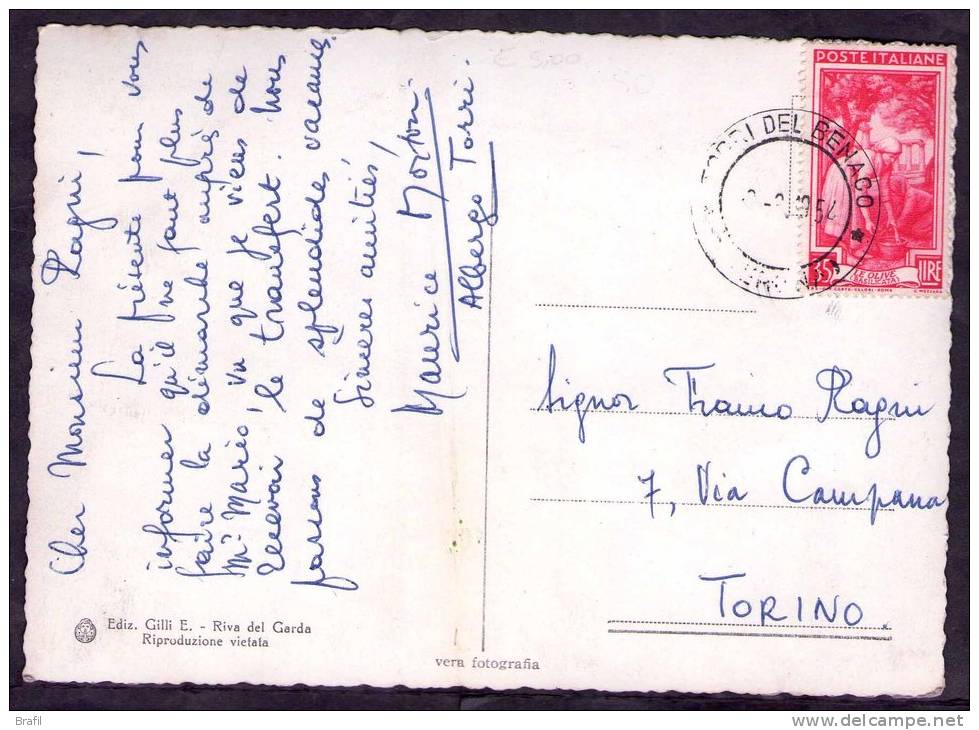 Cher Monsieur Ragni!
La présente pour vous
informer qu'il ne faut plus
faire la démarde auprès de
Mr Marié, vu que je viens de
recevoir le transfert. Nous
passons de splendides vacances.
Sincères amitiés!
Maurice
Albergo Torri.
Ediz. Gilli E. - Riva del Garda
Riproduzione vietata
vera fotografia
€ 5,00
POSTE ITALIANE
35
LE OLIVE
(BASILICATA)
LIRE
TORRI DEL BENACO
Signor Franco Ragni
7, Via Campana
TORINO.
Brafil
www.delcampe.net